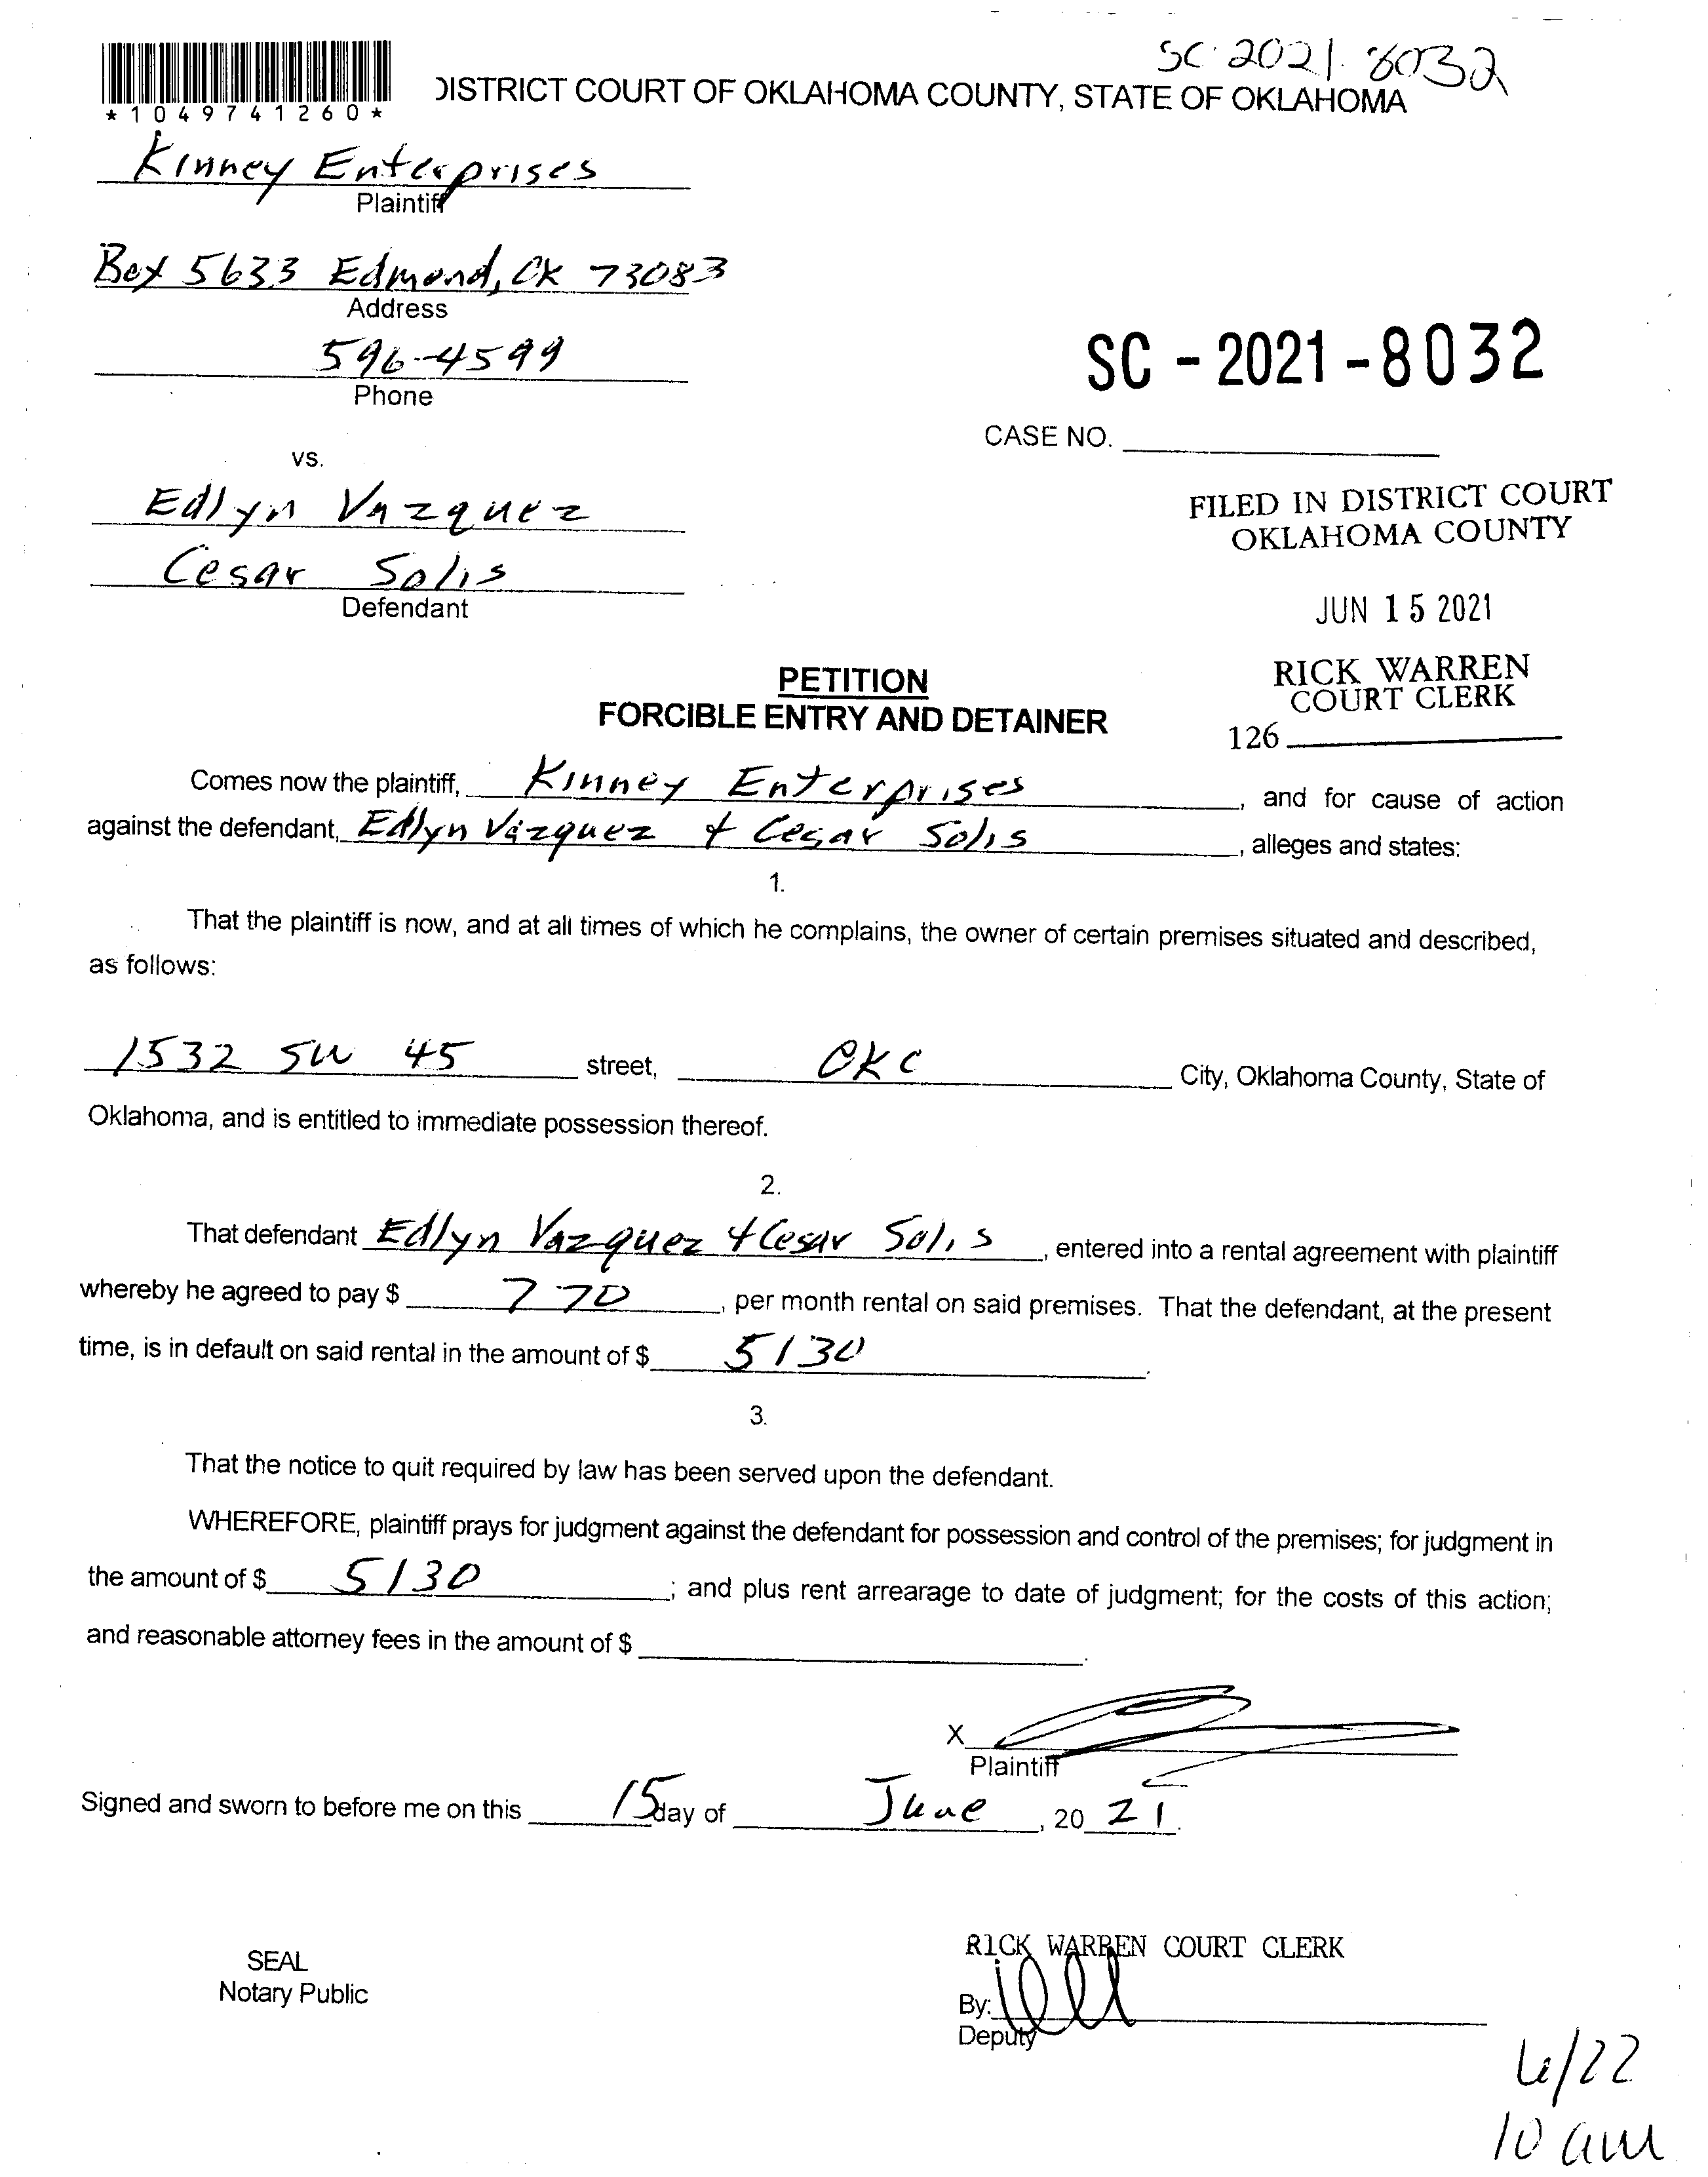 SC 2021. 8032
DISTRICT COURT OF OKLAHOMA COUNTY, STATE OF OKLAHOMA
*1049741260*
Kinney Enterprises
Plaintiff
Box 5633 Edmond, OK 73083
Address
596-4599
Phone
SC - 2021 - 8032
CASE NO.
vs.
Edlyn Vazquez
Cesar Solis
Defendant
FILED IN DISTRICT COURT
OKLAHOMA COUNTY
JUN 15 2021
RICK WARREN
COURT CLERK
126
PETITION
FORCIBLE ENTRY AND DETAINER
Comes now the plaintiff, Kinney Enterprises, and for cause of action
against the defendant, Edlyn Vazquez & Cesar Solis, alleges and states:
1.
That the plaintiff is now, and at all times of which he complains, the owner of certain premises situated and described,
as follows:
1532 SW 45 street, OKC City, Oklahoma County, State of
Oklahoma, and is entitled to immediate possession thereof.
2.
That defendant Edlyn Vazquez & Cesar Solis, entered into a rental agreement with plaintiff
whereby he agreed to pay $ 770, per month rental on said premises. That the defendant, at the present
time, is in default on said rental in the amount of $ 5130.
3.
That the notice to quit required by law has been served upon the defendant.
WHEREFORE, plaintiff prays for judgment against the defendant for possession and control of the premises; for judgment in
the amount of $ 5130; and plus rent arrearage to date of judgment; for the costs of this action;
and reasonable attorney fees in the amount of $ .
X
Plaintiff
Signed and sworn to before me on this 15 day of June, 20 21.
SEAL
Notary Public
RICK WARREN COURT CLERK
By:
Deputy
6/22
10 am